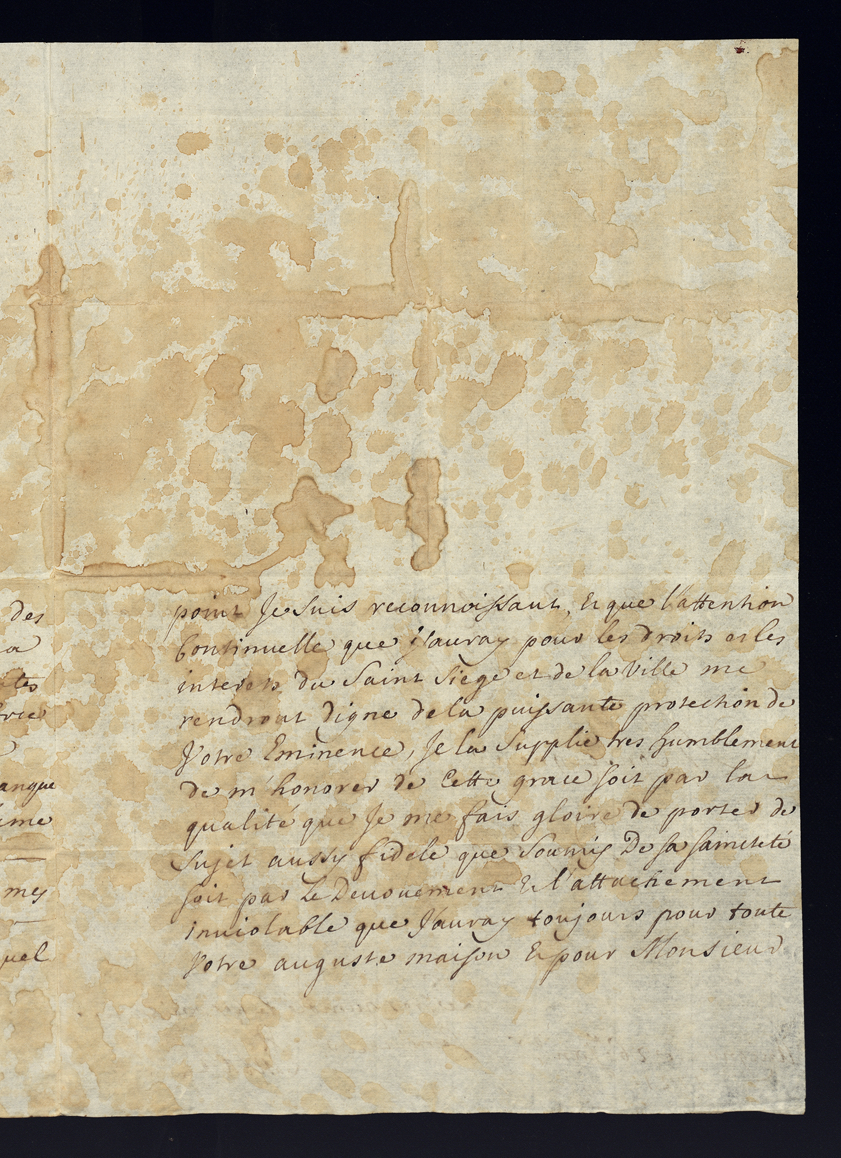 des
a
tes
erce
anque
eme
mes
quel
point Je suis reconnoissant, et que l'attention
Continuelle que J'auray pour les droits et les
interets du Saint Siege et de la Ville me
rendront digne de la puissante protection de
Votre Eminence, Je la Supplie tres humblement
de m'honorer de Cette grace soit par la
qualité que Je me fais gloire de porter de
Sujet aussy fidele que Soumis De sa sainteté
soit par Le Devouement et l'attachement
inviolable que J'auray toujours pour toute
Votre auguste maison et pour Monsieur